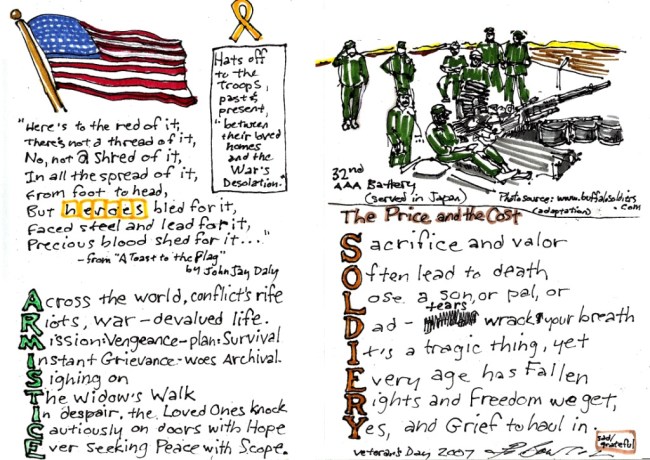 "Here's to the red of it,
There's not a thread of it,
No, not a shred of it,
In all the spread of it,
From foot to head,
But heroes bled for it,
Faced steel and lead for it,
Precious blood shed for it..."
- from "A Toast to the Flag"
by John Jay Daly
Hats off
to the
Troops,
past &
present,
"between
their loved
homes
and the
War's
Desolation."
Across the world, conflict's rife
Riots, war - devalued life.
Mission: Vengeance - plan: Survival
Instant Grievance - woes Archival.
Sighing on
The Widow's Walk
In despair, the Loved Ones knock
Cautiously on doors with Hope
Ever Seeking Peace with Scope.
32nd
AAA Battery
(served in Japan)
Photo source: www.buffalosoldiers
.com
(adaptation)
The Price and the Cost
Sacrifice and valor
Often lead to death
Lose a son, or pal, or
Dad - tears wrack your breath
It's a tragic thing, yet
Every age has Fallen
Rights and Freedom we get,
Yes, and Grief to haul in.
Veteran's Day 2007
sad/
grateful